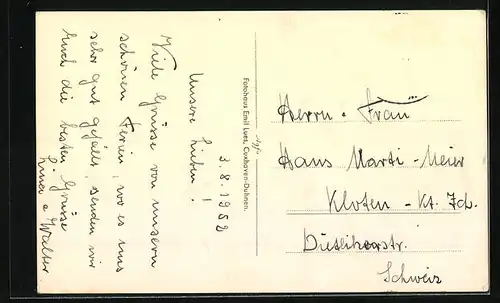 3.8.1952
Unsere Lieben!
Viele Grüsse von unsern
schönen Ferien, wo es uns
sehr gut gefällt, senden wir
Euch die besten Grüsse
Walter
Fotohaus Emil Lues, Cuxhaven-Duhnen.
Herrn u. Frau
Hans Marti-Meier
Kloten - Kt. Zch.
Dietlikerstr.
Schweiz